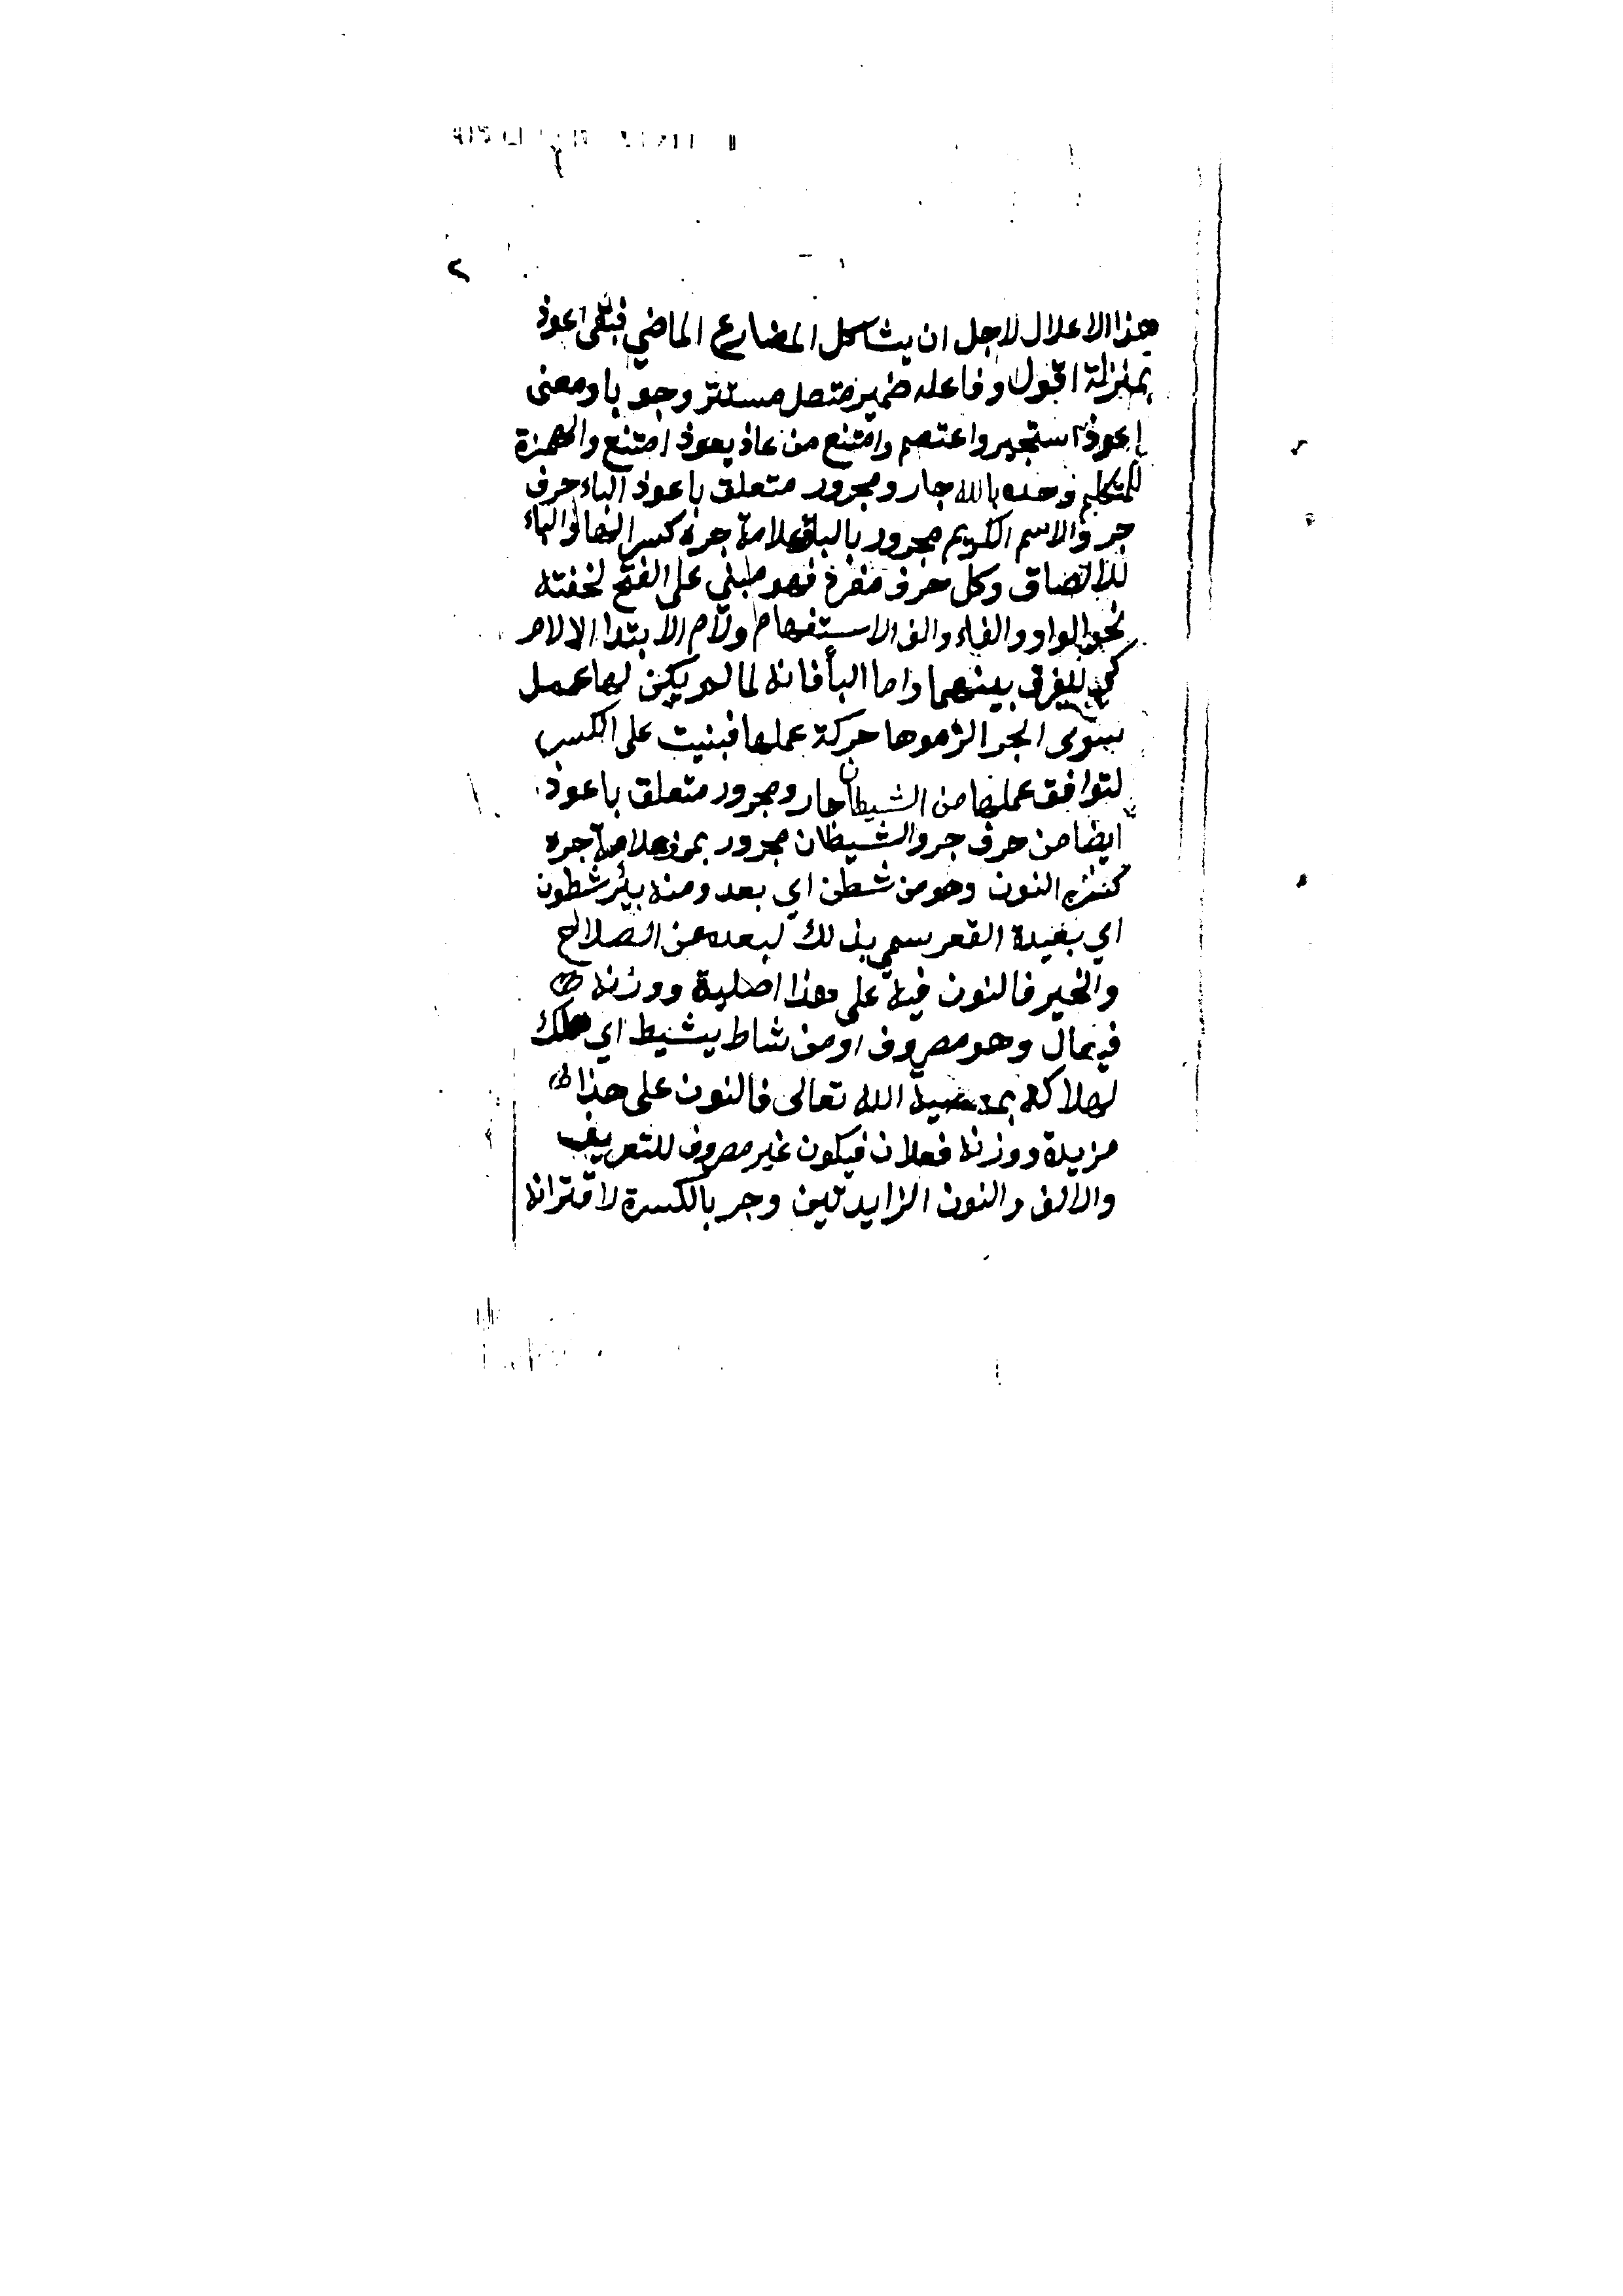 ٢
هذا الاعلال لاجل ان يشاكل المضارع الماضي فبقى اعوذ
بمنزلة اقول وفاعله ضمير متصل مستتر وجوبا ومعنى
اعوذ استجير واعتصم وامتنع من عاذ يعوذ امتنع والهمزة
للمتكلم وحده بالله جار ومجرور متعلق باعوذ الباء حرف
جر والاسم الكريم مجرور بالباء وعلامة جره كسر الهاء والباء
للالصاق وكل حرف مفرد فهو مبني على الفتح لخفته
نحو الواو والفاء والف الاستفهام ولام الابتدا الا لام
كي للفرق بينهما واما البأ فانه لما لم يكن لها عمل
سوى الجر الزموها حركة عملها فبنيت على الكسر
لتوافق عملها من الشيطان جار ومجرور متعلق باعوذ
ايضا من حرف جر والشيطان مجرور بمن وعلامة جره
كسرة النون وهو من شطن اي بعد ومنه بئر شطون
اي بعيدة القعر سمي بذلك لبعده عن الصلاح
والخير فالنون فيه على هذا اصلية ووزنه
فيعال وهو مصروف او من شاط يشيط اي هلك
لهلاكه بمعصية الله تعالى فالنون على هذا
مزيدة ووزنه فعلان فيكون غير مصروف للتعريف
والالف والنون الزايدتين وجر بالكسرة لاقترانه